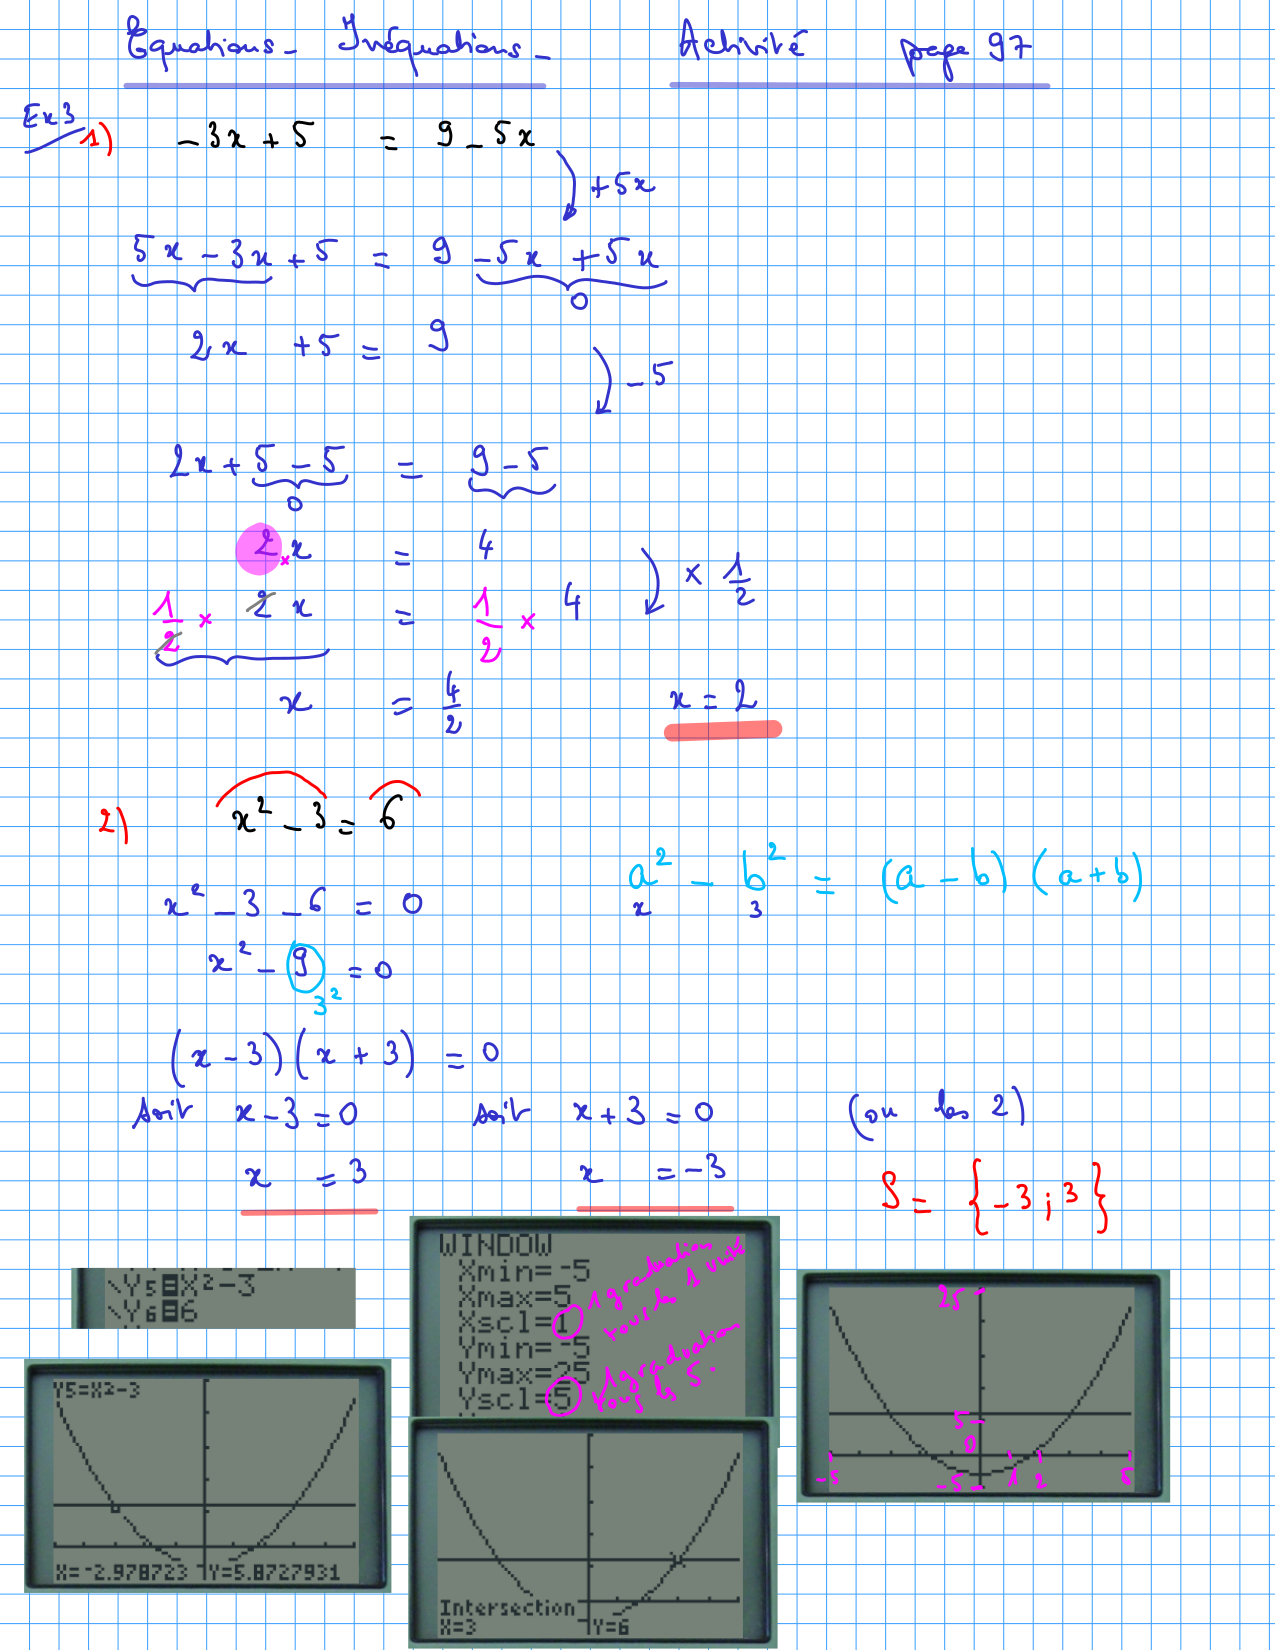 Equations - Inéquations - Activité page 97
Ex3
1) -3x + 5 = 9 - 5x
+5x
5x - 3x + 5 = 9 - 5x + 5x
0
2x + 5 = 9
-5
2x + 5 - 5 = 9 - 5
0
2 × x = 4
× 1/2
1/2 × 2x = 1/2 × 4
x = 4/2 x = 2
2) x² - 3 = 6
a² - b² = (a - b)(a + b)
x 3
x² - 3 - 6 = 0
x² - 9 = 0
3²
(x - 3)(x + 3) = 0
soit x - 3 = 0 soit x + 3 = 0 (ou les 2)
x = 3 x = -3
S = {-3 ; 3}
\Y5=X²-3
\Y6=6
WINDOW
Xmin=-5
Xmax=5
Xscl=1
1 graduation
tous les 1 unité
Ymin=-5
Ymax=25
Yscl=5
1 graduation
tous les 5.
25
5
0
-5 -5 1 2 5
Y5=X²-3
X=-2.978723 Y=5.8727931
Intersection
X=3 Y=6